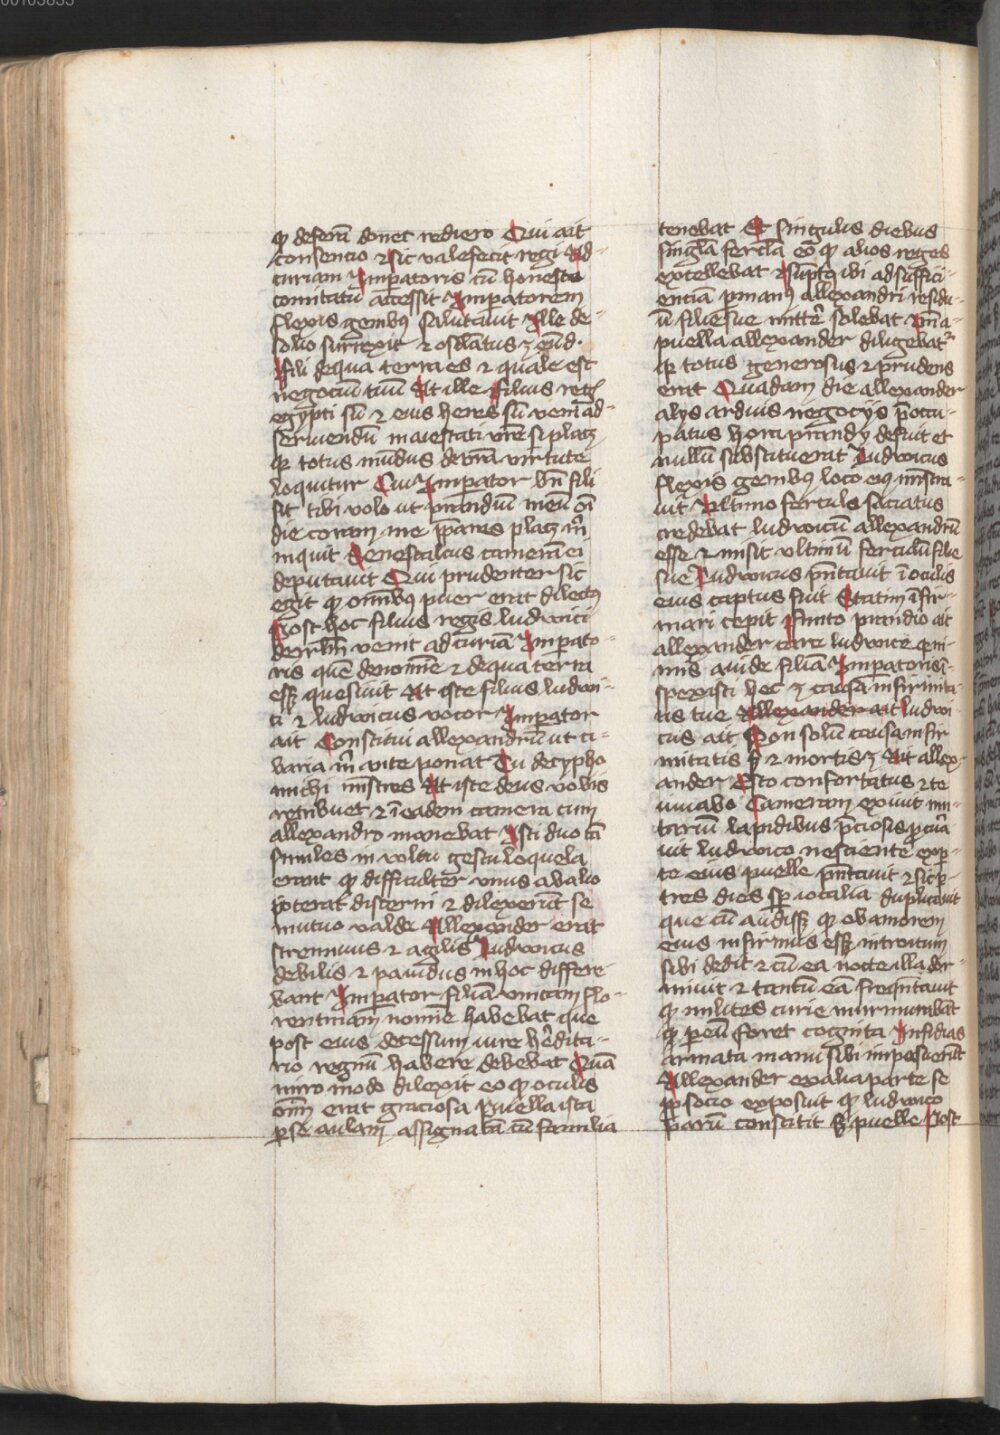 00103855
ꝙ deferā donec rediero Cui ait
consencio ⁊ sic valefecit regi Ad
curiam Imperatoris cū honesto
comitatu accessit Imꝑatorem
flexis genibꝰ salutauit Ille de-
solio surrexit ⁊ osclatus ē eūd.
Fili de qua terra es ⁊ quale est
negociū tuū At ille Filius reg
egypti sū ⁊ eius heres sū venī ad-
seruiendū maiestati vr̄e si placꝫ
qr totus mūdus de vr̄a virtute
loquitur Cui Imperator bn̄ fili
sit tibi volo ut prandiū meū oī
die coram me p̄pares placꝫ m̄
inquit Senescalcus camerā ei
deputauit Qui prudenter sic
egit ꝙ omībꝰ puer erat dilectꝰ
Post hoc filius regis ludwici
venit ad curiā Imperato-
ris quē de nomīe ⁊ de qua terra
essꝫ quesiuit At iste filius ludwi-
ci ⁊ ludwicus vocor Imperator
ait Constitui allexandrū ut ci-
baria m̄ ante ponat Tu de cypho
michi mīstres At iste deus vobis
retribuet ⁊ ī eadem camera cum
allexandro manebat Isti duo tā
similes in vultu gestu loquela
erant ꝙ difficulter vnus ab alio
poterat discerni ⁊ dilexerūt se
mutuo valde Allexander erat
strennuus ⁊ agilis Ludwicus
debilis ⁊ pauidus in hoc differe
bant Imperator filiā vnicam flo-
rentinam nomīe habebat que
post eius decessum iure h̄edita-
rio regnū habere debebat Quā
miro modo dilexit eo ꝙ oculis
om̄ erat graciosa Puella ista
ꝑ se aulam assignatā cū familia
tenebat Et singulis diebus
singl̄a fercl̄a eo ꝙ alios reges
excellebat ⁊ sūpto ibi ad suffici-
enciā ꝑ manꝰ allexandri residu-
ū filie sue mitte solebat Vn̄ a
puella allexander diligebatᷣ
qr totus generosus ⁊ prudens
erat Quadam die allexander
alys arduis negocys p̄occu-
patus hora prandy defuit et
nullū substituerat Ludwicus
flexis genibꝰ loco eiꝰ mīstra-
uit Vltimo ferculo saciatus
credebat ludwicū allexandrū
esse ⁊ misit vltimū ferculū filie
sue Ludwicus p̄ntauit ī oculis
eius captus fuit Statim īfir-
mari cepit Finito prandio ait
allexander care ludwice q ni-
mis auide filiā Imperatoris ī-
spexisti hec ē causa infirmita-
tis tue Allexander ait Ludwi-
cus ait Non solū causa infir
mitatis sꝫ ⁊ mortis ē Ait allex-
ander Esto confortatus ⁊ te
iuuabo Cameram exiuit mu-
lapidibus p̄ciosis
uit ludwico nesciente
te eius puelle p̄ntauit ⁊ sic ꝑ-
tres dies sꝑ iocalia duplicauit
que cū audissꝫ ꝙ ob amorem
eius infirmus essꝫ introitum
sibi dedit ⁊ cū ea nocte illa dor-
miuit ⁊ tantū eā freqntauit
ꝙ milites curie murmurabāt
ꝙ ꝑ eū foret cognita Insidias
armata manu sibi imposuerūt
Allexander ex alia parte se
ꝓ socio exposuit ꝙ ludwico
parū constitit sꝫ puelle Post